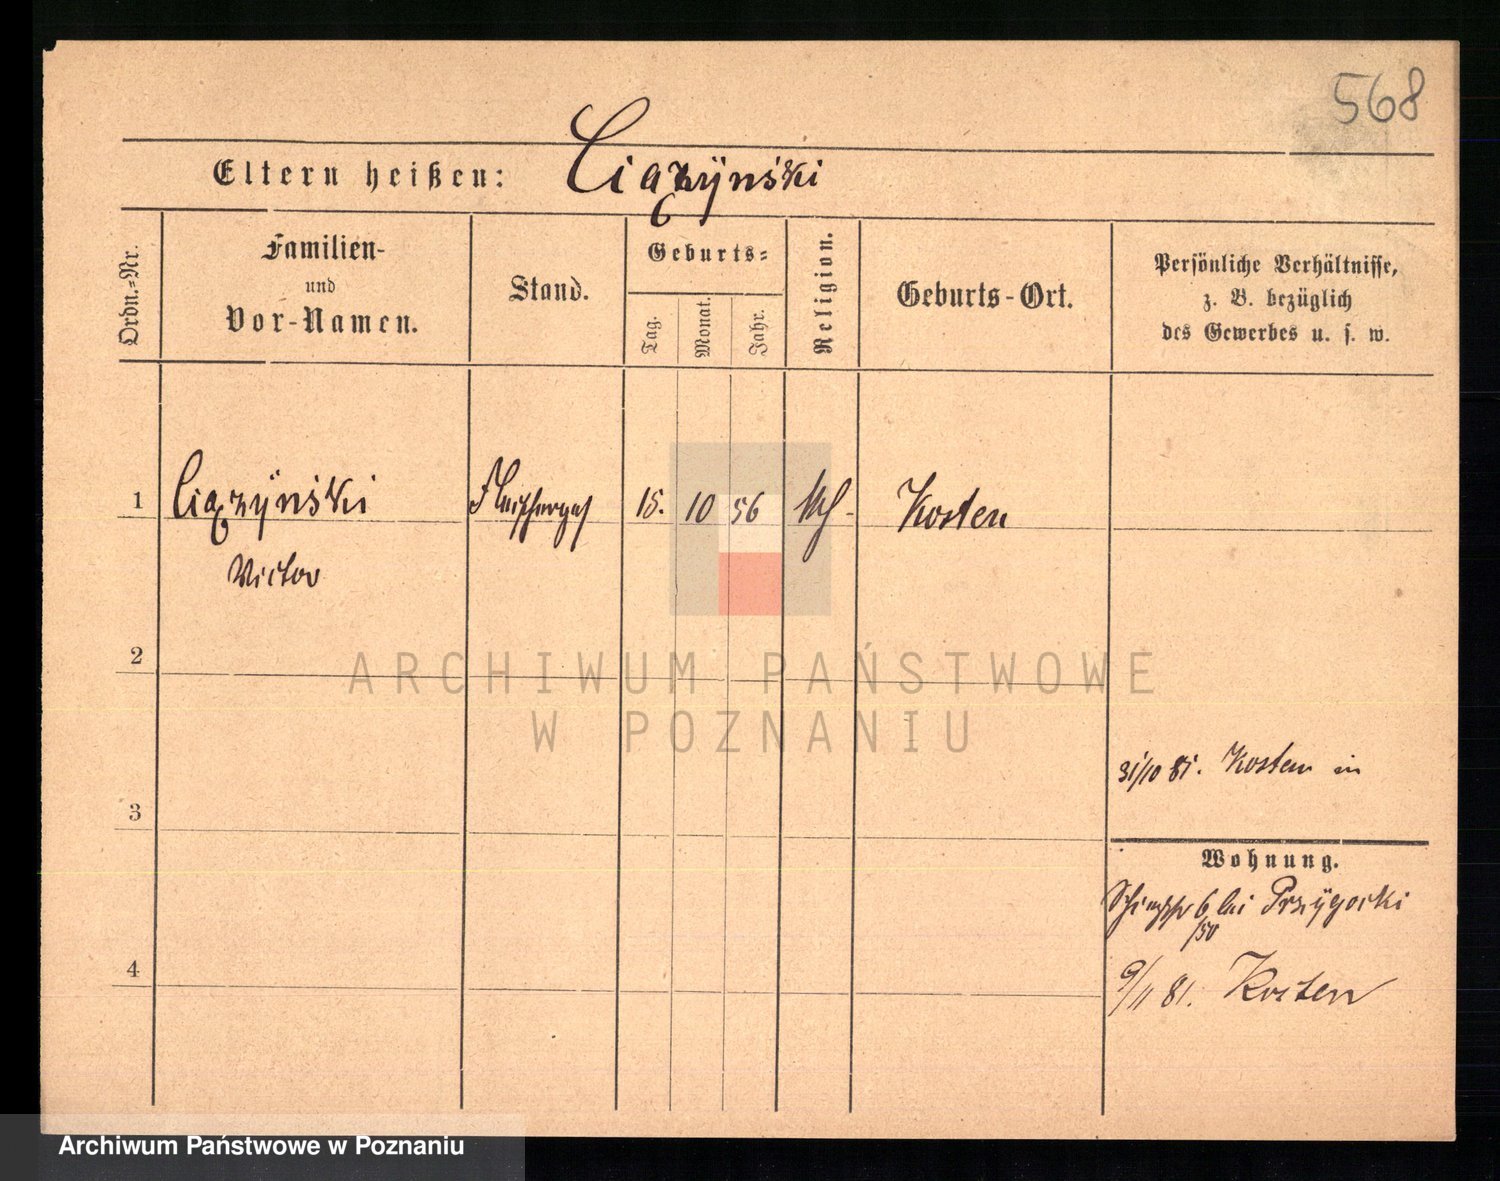 568
Eltern heißen: Ciązyński
Ordn.-Nr.
Familien-
und
Vor-Namen.
Stand.
Geburts-
Tag.
Monat.
Jahr.
Religion.
Geburts-Ort.
Persönliche Verhältnisse,
z. B. bezüglich
des Gewerbes u. s. w.
1 Ciązyński Fleischerges 15. 10 56 Kosten
Victor
2
ARCHIWUM PAŃSTWOWE
W POZNANIU
31/10 81. Kosten in
3
Wohnung.
6 bei Przygocki
/50
4
9/11 81. Kosten
Archiwum Państwowe w Poznaniu